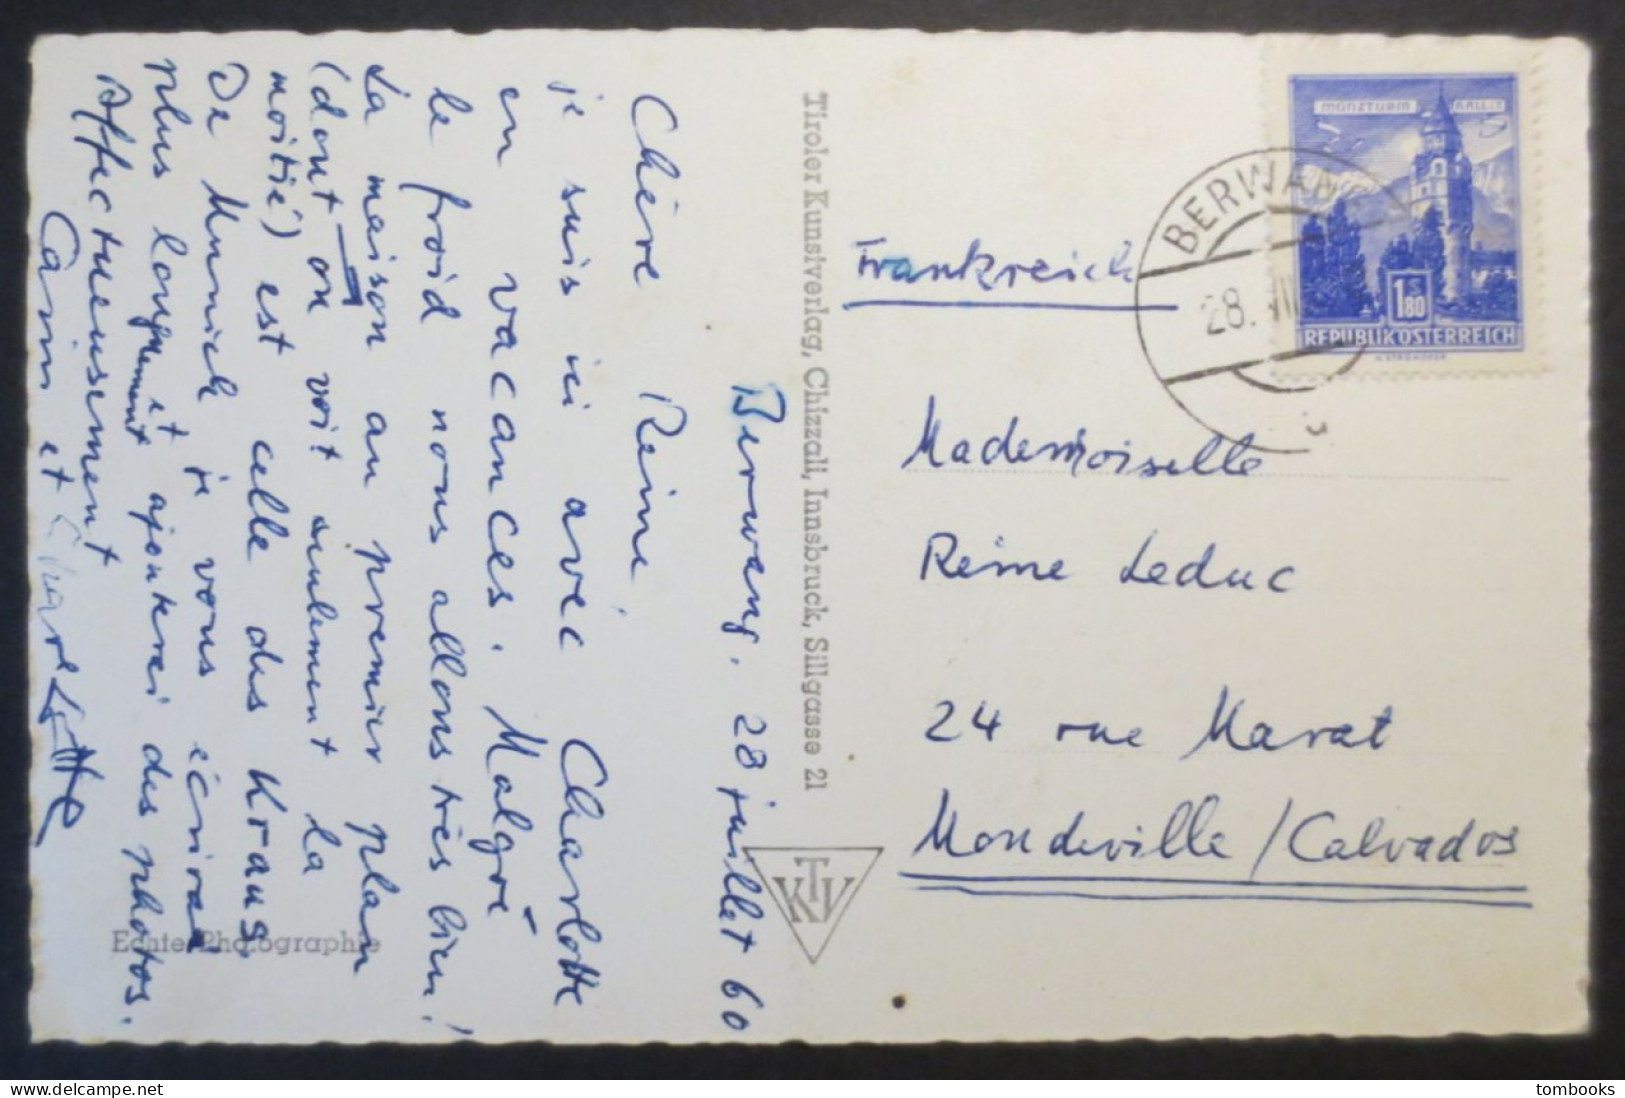 Berwang, 28 juillet 60
Chère Reine
je suis ici avec Charlotte
en vacances. Malgré
le froid nous allons très bien!
La maison au premier plan
(dont on voit seulement la
moitié) est celle des Kraus,
De Munich je vous écrirai
plus longuement et ajouterai des photos.
Affectueusement
et Charlotte
Tiroler Kunstverlag, Chizzali, Innsbruck, Sillgasse 21
TKV
Echte Photographie
MÜNZTURM HALL i.T.
1.80
S
REPUBLIK ÖSTERREICH
BERWANG
28. VII
Frankreich
Mademoiselle
Reine Leduc
24 rue Marat
Mondeville / Calvados
tombooks